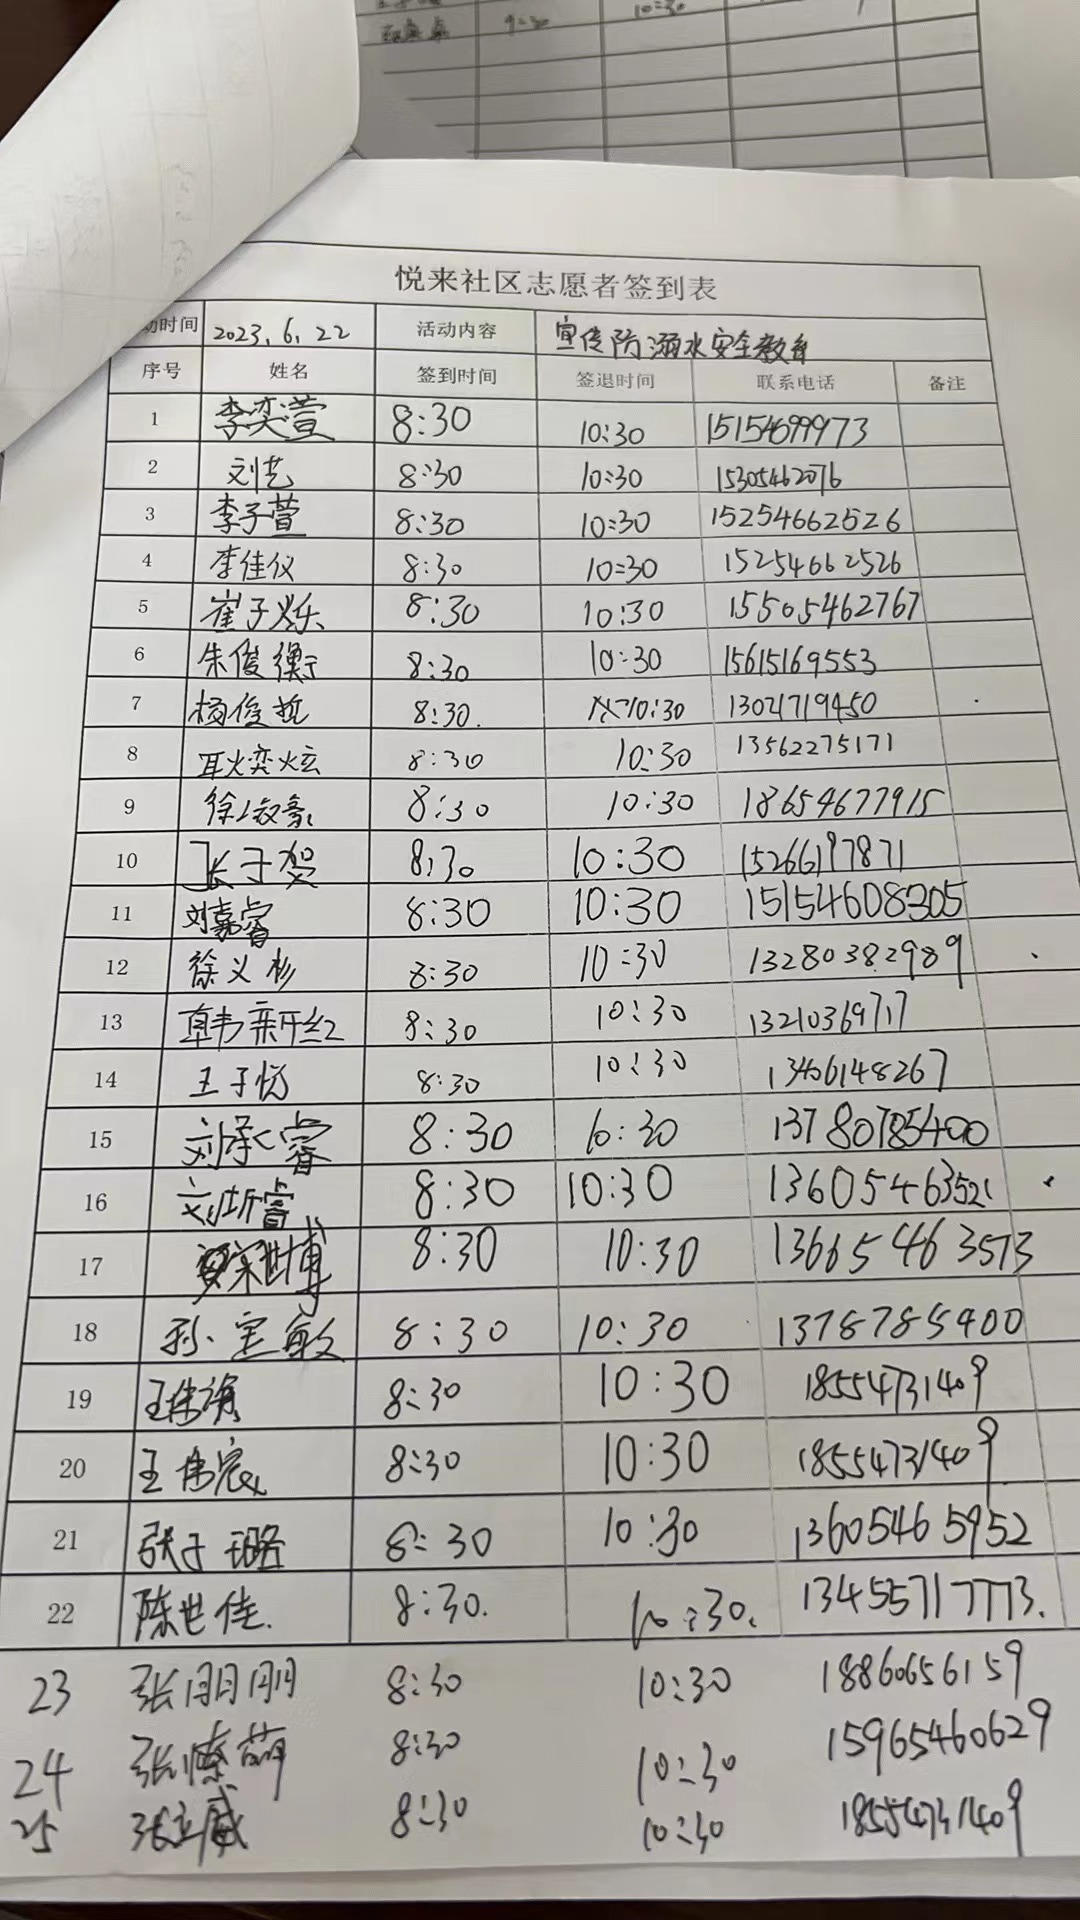 9:30 10:30
悦来社区志愿者签到表
动时间 2023.6.22 活动内容 宣传防溺水安全教育
序号 姓名 签到时间 签退时间 联系电话 备注
1 李奕萱 8:30 10:30 15154699973
2 刘艺 8:30 10:30 15305462076
3 李子萱 8:30 10:30 15254662526
4 李佳仪 8:30 10:30 15254662526
5 崔子烁 8:30 10:30 15505462767
6 朱俊衡 8:30 10:30 15615169553
7 杨俊哲 8:30. 10:30 13021719450
8 耿奕炫 8:30 10:30 13562275171
9 徐豪 8:30 10:30 18654677915
10 张于贺 8:30 10:30 15266197871
11 刘嘉睿 8:30 10:30 15154608305
12 徐义杉 8:30 10:30 13280382989
13 8:30 10:30 13210369717
14 王子悦 8:30 10:30 13406148267
15 刘承睿 8:30 10:30 13780785400
16 刘昕睿 8:30 10:30 13605463521
17 世博 8:30 10:30 13665463573
18 孙宝敏 8:30 10:30 1378785400
19 王 8:30 10:30 18554731409
20 王伟宸 8:30 10:30 18554731409
21 张于璐 8:30 10:30 13605465952
22 陈世佳. 8:30. 10:30. 13455717773.
23 张朋朋 8:30 10:30 18860656159
24 张 萌 8:30 10:30 15965460629
25 张立威 8:30 10:30 18554731409